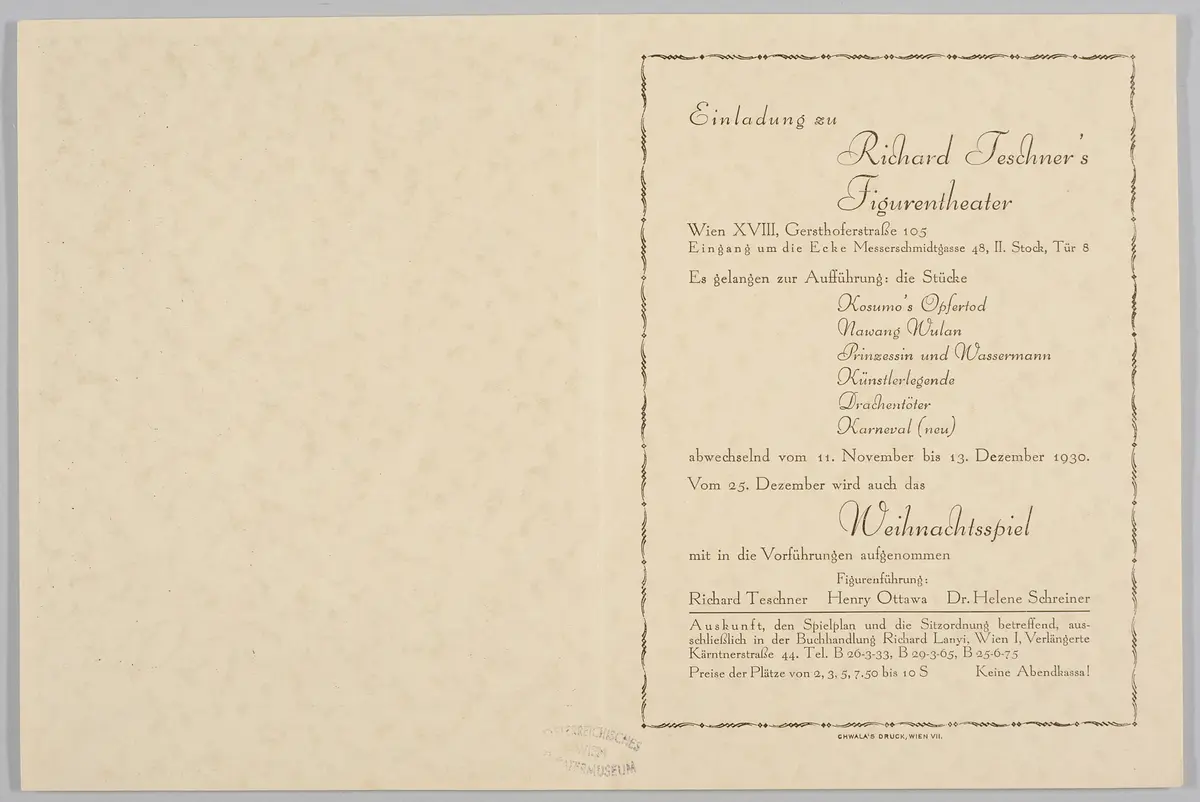 Einladung zu
Richard Teschner's
Figurentheater
Wien XVIII, Gersthoferstraße 105
Eingang um die Ecke Messerschmidtgasse 48, II. Stock, Tür 8
Es gelangen zur Aufführung: die Stücke
Kosumo's Opfertod
Nawang Wulan
Prinzessin und Wassermann
Künstlerlegende
Drachentöter
Karneval (neu)
abwechselnd vom 11. November bis 13. Dezember 1930.
Vom 25. Dezember wird auch das
Weihnachtsspiel
mit in die Vorführungen aufgenommen
Figurenführung:
Richard Teschner Henry Ottawa Dr. Helene Schreiner
Auskunft, den Spielplan und die Sitzordnung betreffend, aus-
schließlich in der Buchhandlung Richard Lanyi, Wien I, Verlängerte
Kärntnerstraße 44. Tel. B 26-3-33, B 29-3-65, B 25-6-75
Preise der Plätze von 2, 3, 5, 7.50 bis 10 S Keine Abendkassa!
CHWALA'S DRUCK, WIEN VII.
WIEN